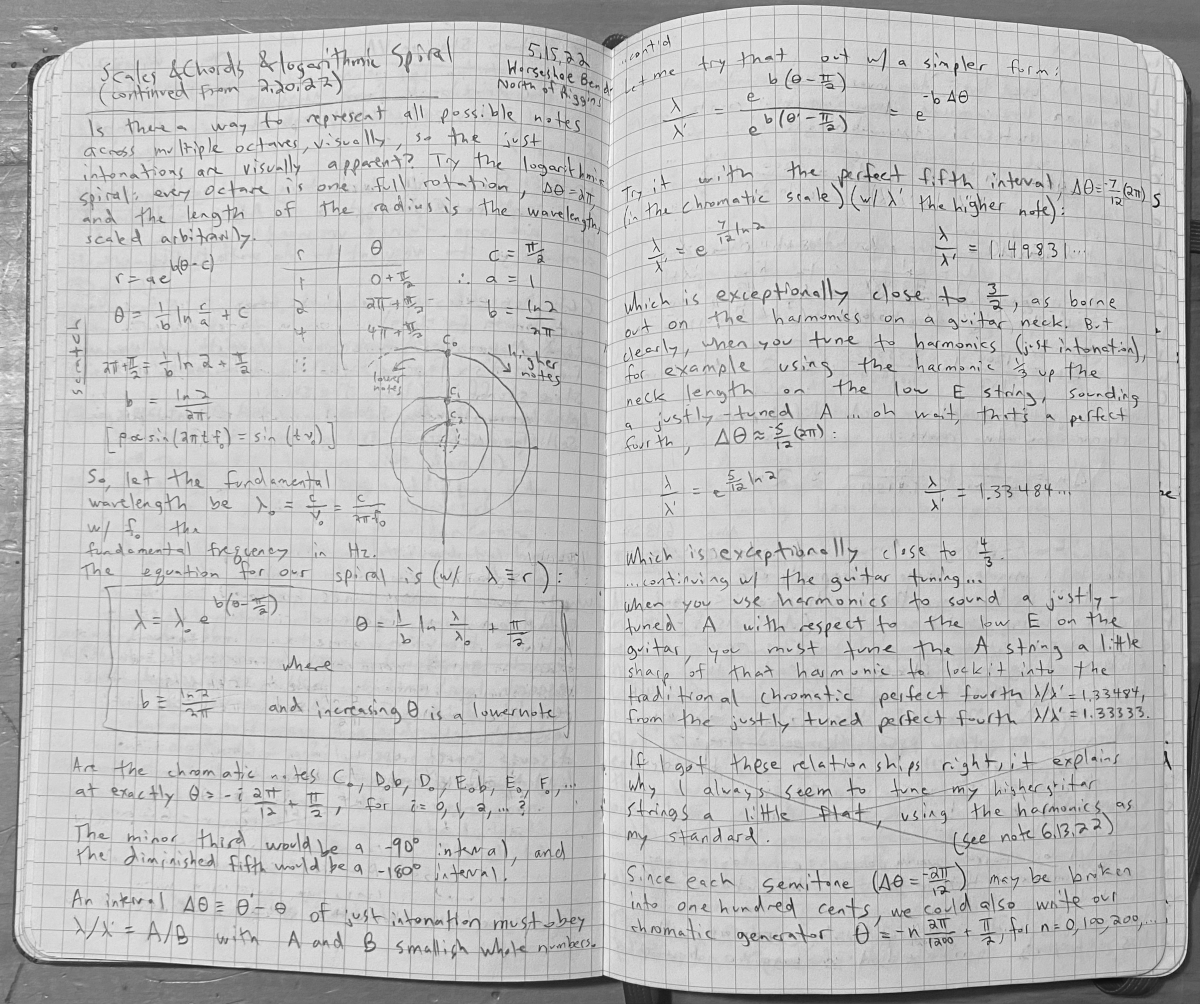 Scales & Chords & logarithmic Spiral
(continued from 2,20,22)
5,15,22
Horseshoe Bend
North of Riggins
Is there a way to represent all possible notes
across multiple octaves, visually, so the just
intonations are visually apparent? Try the logarithmic
spiral: every octave is one full rotation, Δθ = 2π
and the length of the radius is the wavelength,
scaled arbitrarily.
r = ae^{b(θ-c)}
θ = 1/b ln r/a + c
2π + π/2 = 1/b ln 2 + π/2
b = ln 2/2π
[p ∝ sin(2πtf₀) = sin(tν₀)]
r θ
1 0 + π/2
2 2π + π/2
4 4π + π/2
⋮
c = π/2
∴ a = 1
b = ln 2/2π
lower notes
higher notes
C₀
C₁
C₂
So, let the fundamental
wavelength be λ₀ = c/ν₀ = c/2πf₀
w/ f₀ the
fundamental frequency in Hz.
The equation for our spiral is (w/ λ ≡ r):
λ = λ₀ e^{b(θ-π/2)} θ = 1/b ln λ/λ₀ + π/2
where
b ≡ ln 2/2π and increasing θ is a lower note
Are the chromatic notes C₀, D₀b, D₀, E₀b, E₀, F₀, ...
at exactly θ = -i 2π/12 + π/2, for i = 0, 1, 2, ...?
The minor third would be a -90° interval, and
the diminished fifth would be a -180° interval.
An interval Δθ ≡ θ' - θ of just intonation must obey
λ/λ' = A/B with A and B smallish whole numbers.
...cont'd
Let me try that out w/ a simpler form:
λ/λ' = e^{b(θ-π/2)}/e^{b(θ'-π/2)} = e^{-bΔθ}
Try it with the perfect fifth interval, Δθ = -7/12 (2π)
(in the chromatic scale) (w/ λ' the higher note):
λ/λ' = e^{7/12 ln 2} λ/λ' = 1.49831...
Which is exceptionally close to 3/2, as borne
out on the harmonics on a guitar neck. But
clearly, when you tune to harmonics (just intonation),
for example using the harmonic 1/3 up the
neck length on the low E string, sounding
a justly-tuned A ... oh wait, that's a perfect
fourth, Δθ ≈ -5/12 (2π):
λ/λ' = e^{5/12 ln 2} λ/λ' = 1.33484...
Which is exceptionally close to 4/3.
...continuing w/ the guitar tuning...
When you use harmonics to sound a justly-
tuned A with respect to the low E on the
guitar, you must tune the A string a little
sharp of that harmonic to lock it into the
traditional chromatic perfect fourth λ/λ' = 1.33484,
from the justly tuned perfect fourth λ/λ' = 1.33333.
If I got these relationships right, it explains
why I always seem to tune my higher guitar
strings a little flat, using the harmonics as
my standard. (see note 6,13,22)
Since each semitone (Δθ = -2π/12) may be broken
into one hundred cents, we could also write our
chromatic generator θ = -n 2π/1200 + π/2, for n = 0, 100, 200, ...